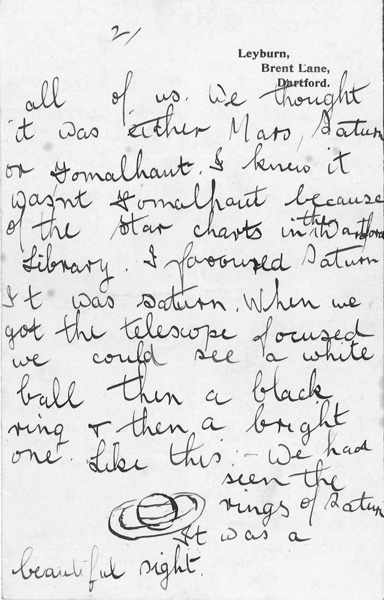 2/
Leyburn,
Brent Lane,
Dartford.
all of us. We thought
it was either Mars, Saturn
or Fomalhaut. I knew it
wasnt Fomalhaut because
of the star charts in the
Library. I favoured Saturn
It was saturn. When we
got the telescope focused
we could see a white
ball then a black
ring & then a bright
one. Like this:- We had
seen the
rings of Saturn
It was a
beautiful sight.